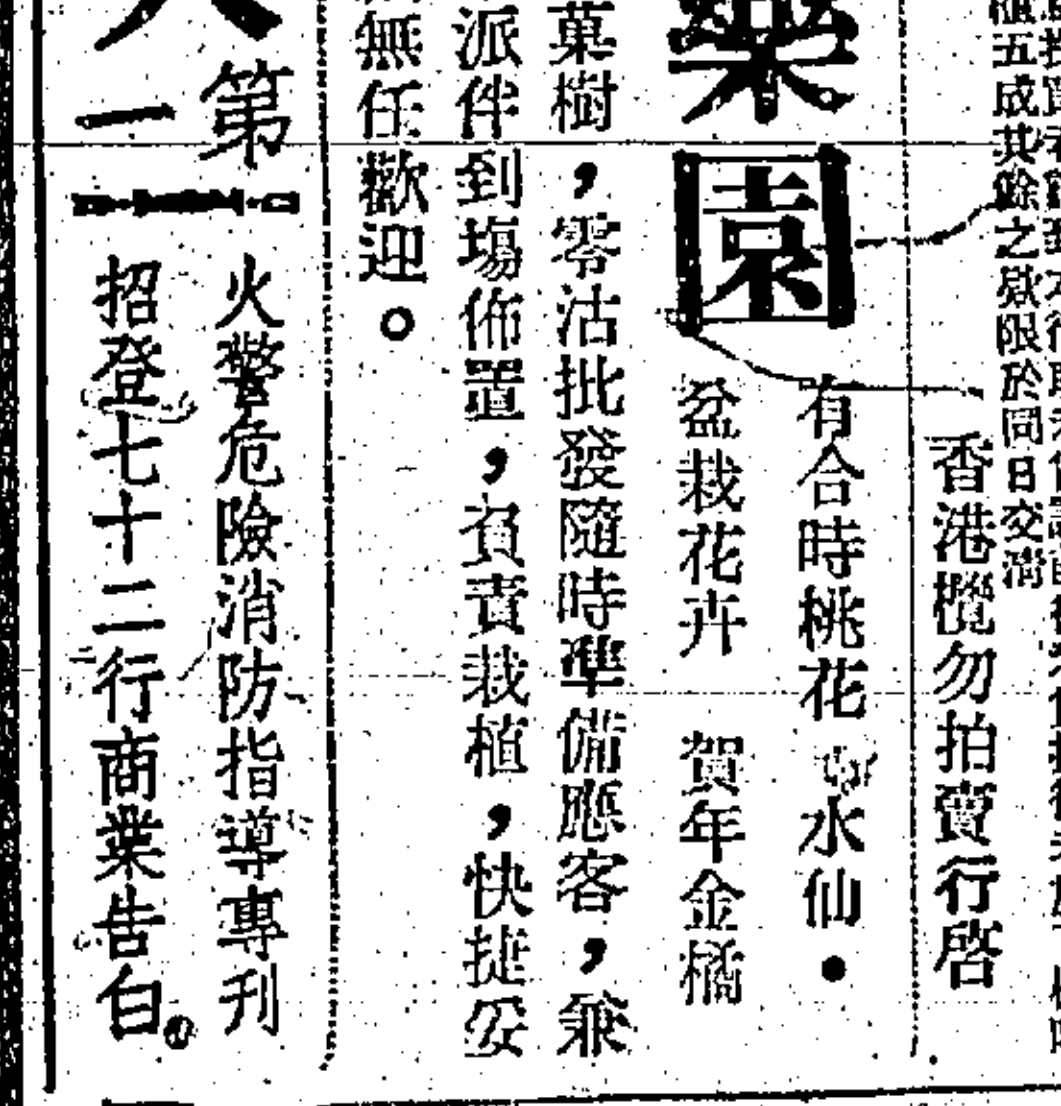 五成其餘之欵限於同日交清
香港欖勿拍賣行啓
樂園
有合時桃花 水仙●
盆栽花卉 賀年金橘
菓樹，零沽批發隨時準備應客，兼
派伴到塲佈置，負責栽植，快捷妥
無任歡迎。
第一
火警危險消防指導專刊
招登七十二行商業告白。